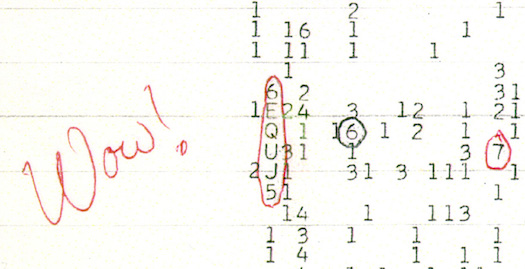 1 2 1
1 16 1 1
1 11 1 1
1 3
6 2 31
1 E 24 3 12 1 21
Q 1 16 1 2 1 1
U 31 1 3 7
2 J 31 3 111 1
5 1 1
14 1 113
1 3 1 1 1
1 4 1 1 1
Wow!